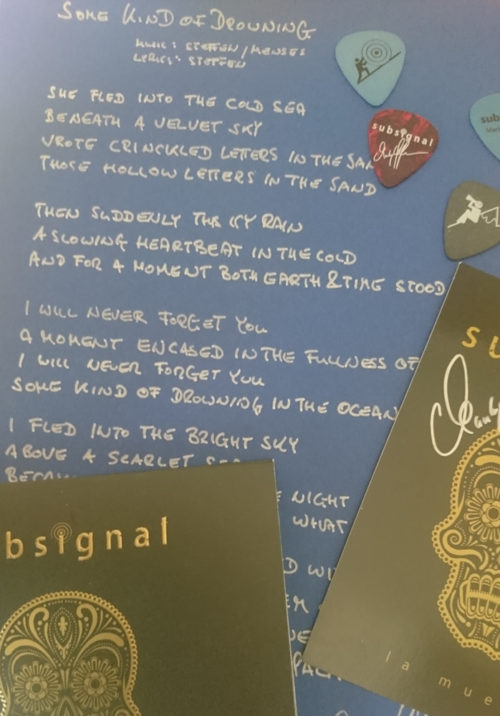 SOME KIND OF DROWNING
MUSIC: STEFFEN/MENSES
LYRICS: STEFFEN
SHE FLED INTO THE COLD SEA
BENEATH A VELVET SKY
WROTE CRINCKLED LETTERS IN THE SAN
THOSE HOLLOW LETTERS IN THE SAND
THEN SUDDENLY THE ICY RAIN
A SLOWING HEARTBEAT IN THE COLD
AND FOR A MOMENT BOTH EARTH & TIME STOOD
I WILL NEVER FORGET YOU
A MOMENT ENCASED IN THE FULLNESS OF
I WILL NEVER FORGET YOU
SOME KIND OF DROWNING IN THE OCEAN
I FLED INTO THE BRIGHT SKY
ABOVE A SCARLET
NIGHT
WHAT
subsignal
sub
bsignal
la mue